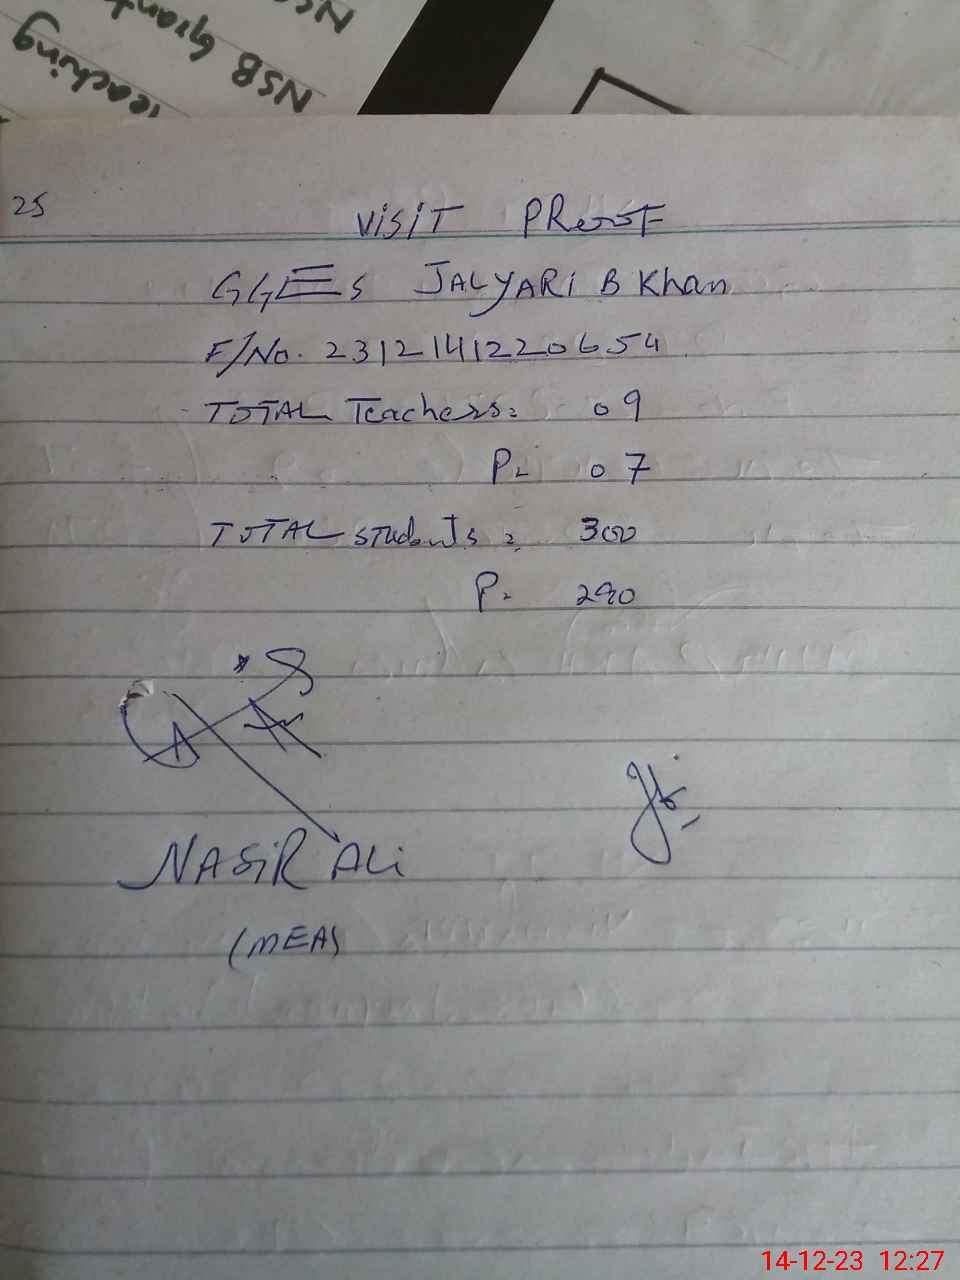 NSB Grant
Teaching
25
VISIT PROOF
GGES JALYARI B Khan
F/No. 2312141220654
TOTAL Teachers = 09
P = 07
TOTAL students = 300
P = 290
NASIR ALI
(MEA)
14-12-23 12:27